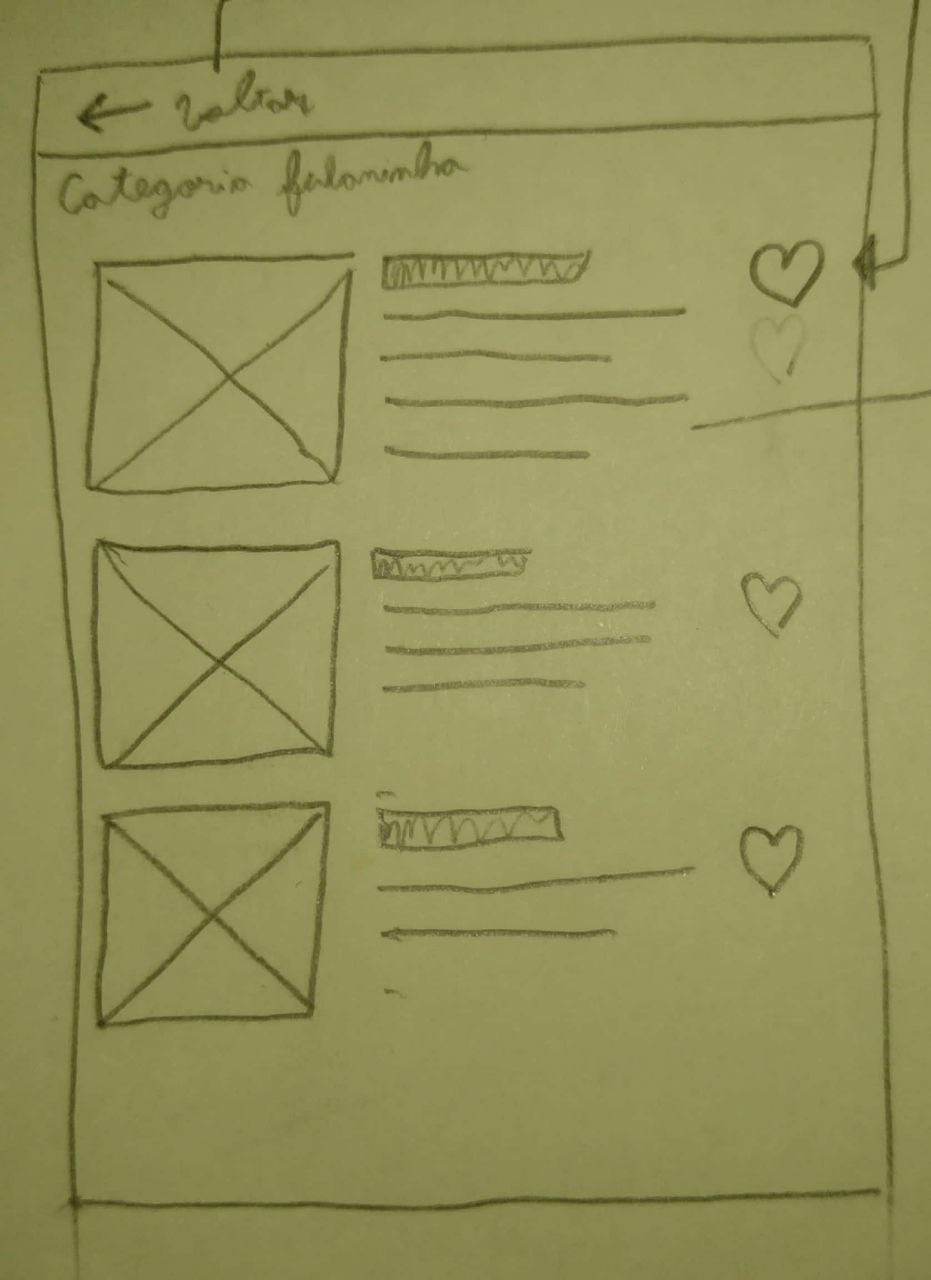 ← voltar
Categoria fulaninha